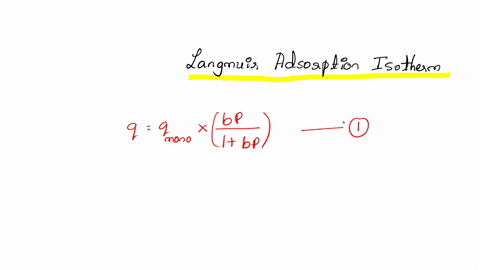 Langmuir Adsorption Isotherm
q = q mono × (bP / 1 + bP) —— ①